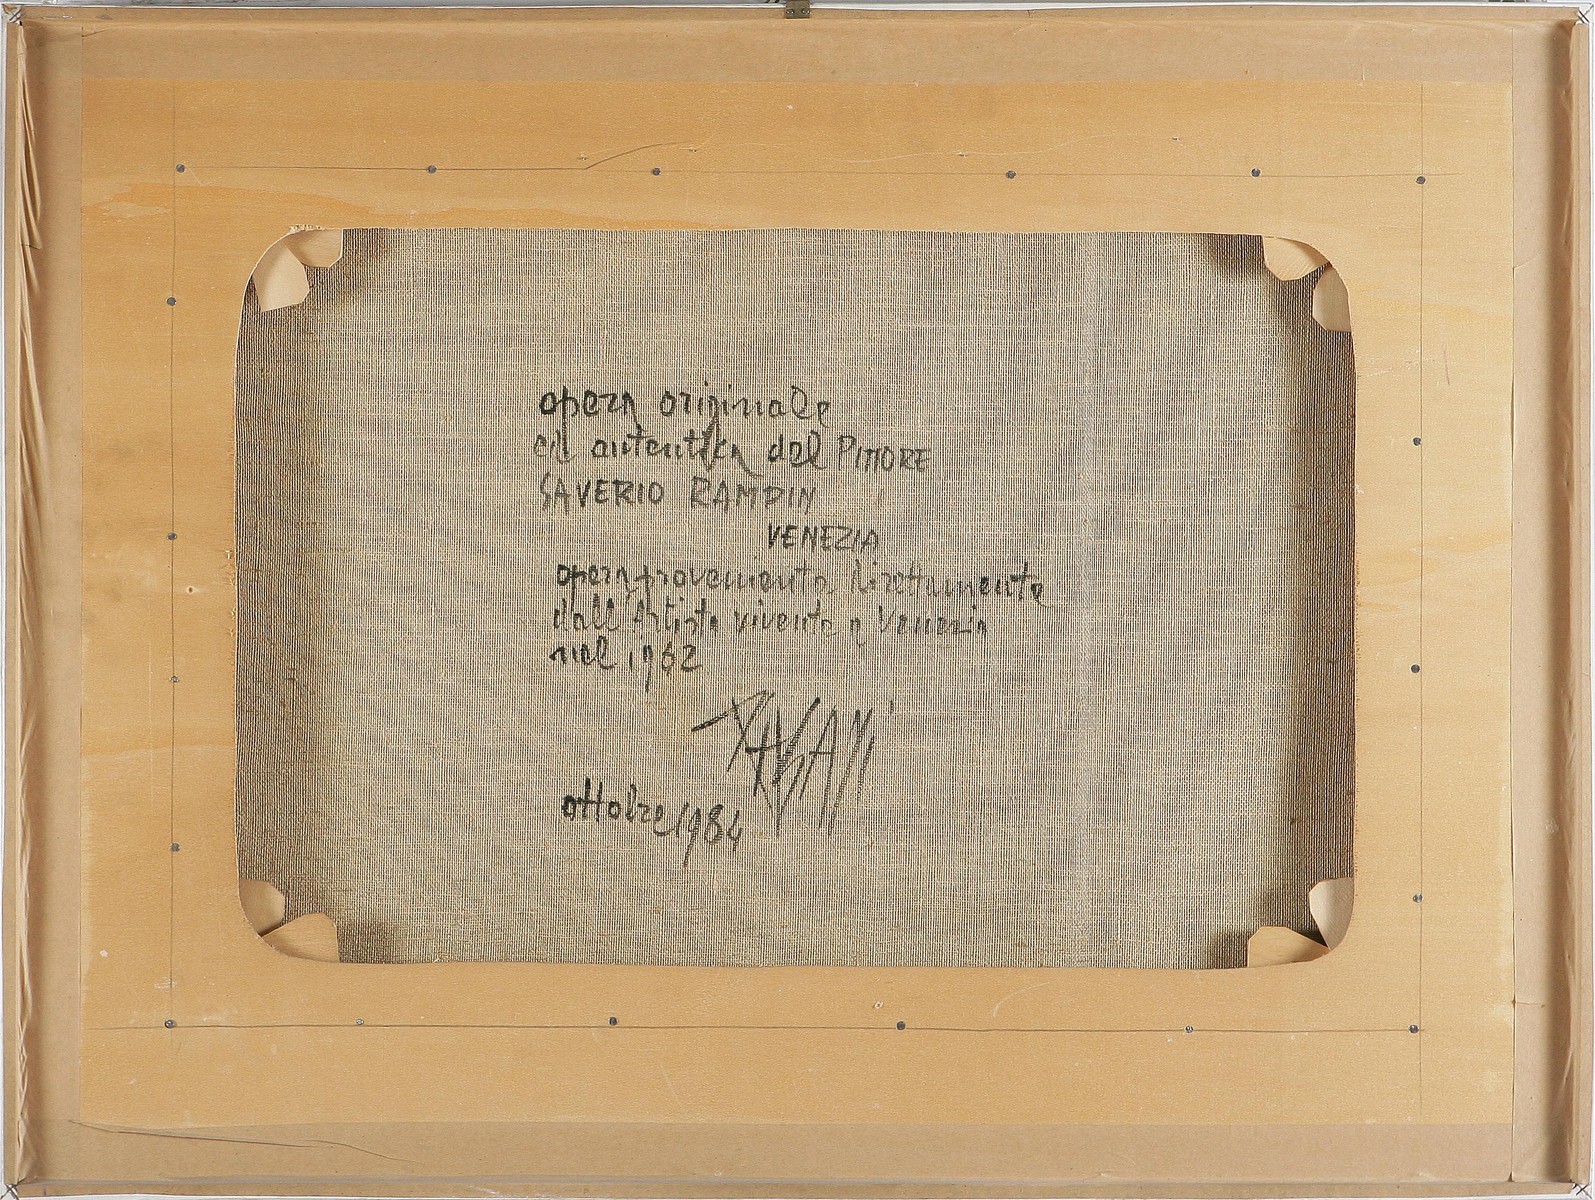 opera originale
ed autentica del PITTORE
SAVERIO RAMPIN
VENEZIA
opera proveniente direttamente
dall'Artista vivente a Venezia
nel 1962
ottobre 1984